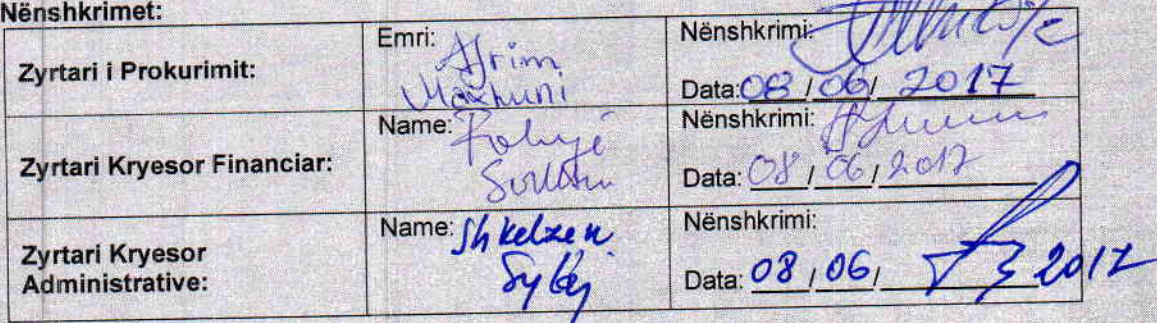 Nënshkrimet:
Zyrtari i Prokurimit:
Emri: Afrim
Maxhuni
Nënshkrimi:
Data: 08 / 06 / 2017
Zyrtari Kryesor Financiar:
Name:
Nënshkrimi:
Data: 08 / 06 / 2017
Zyrtari Kryesor
Administrative:
Name: Shkelzen
Sylaj
Nënshkrimi:
Data: 08 / 06 / 2017